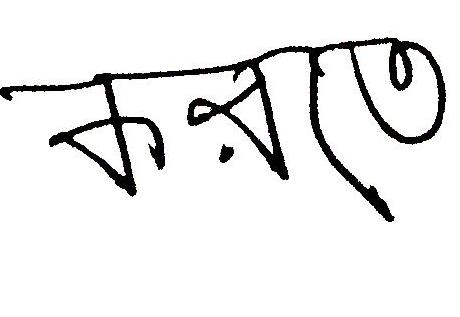 করতে